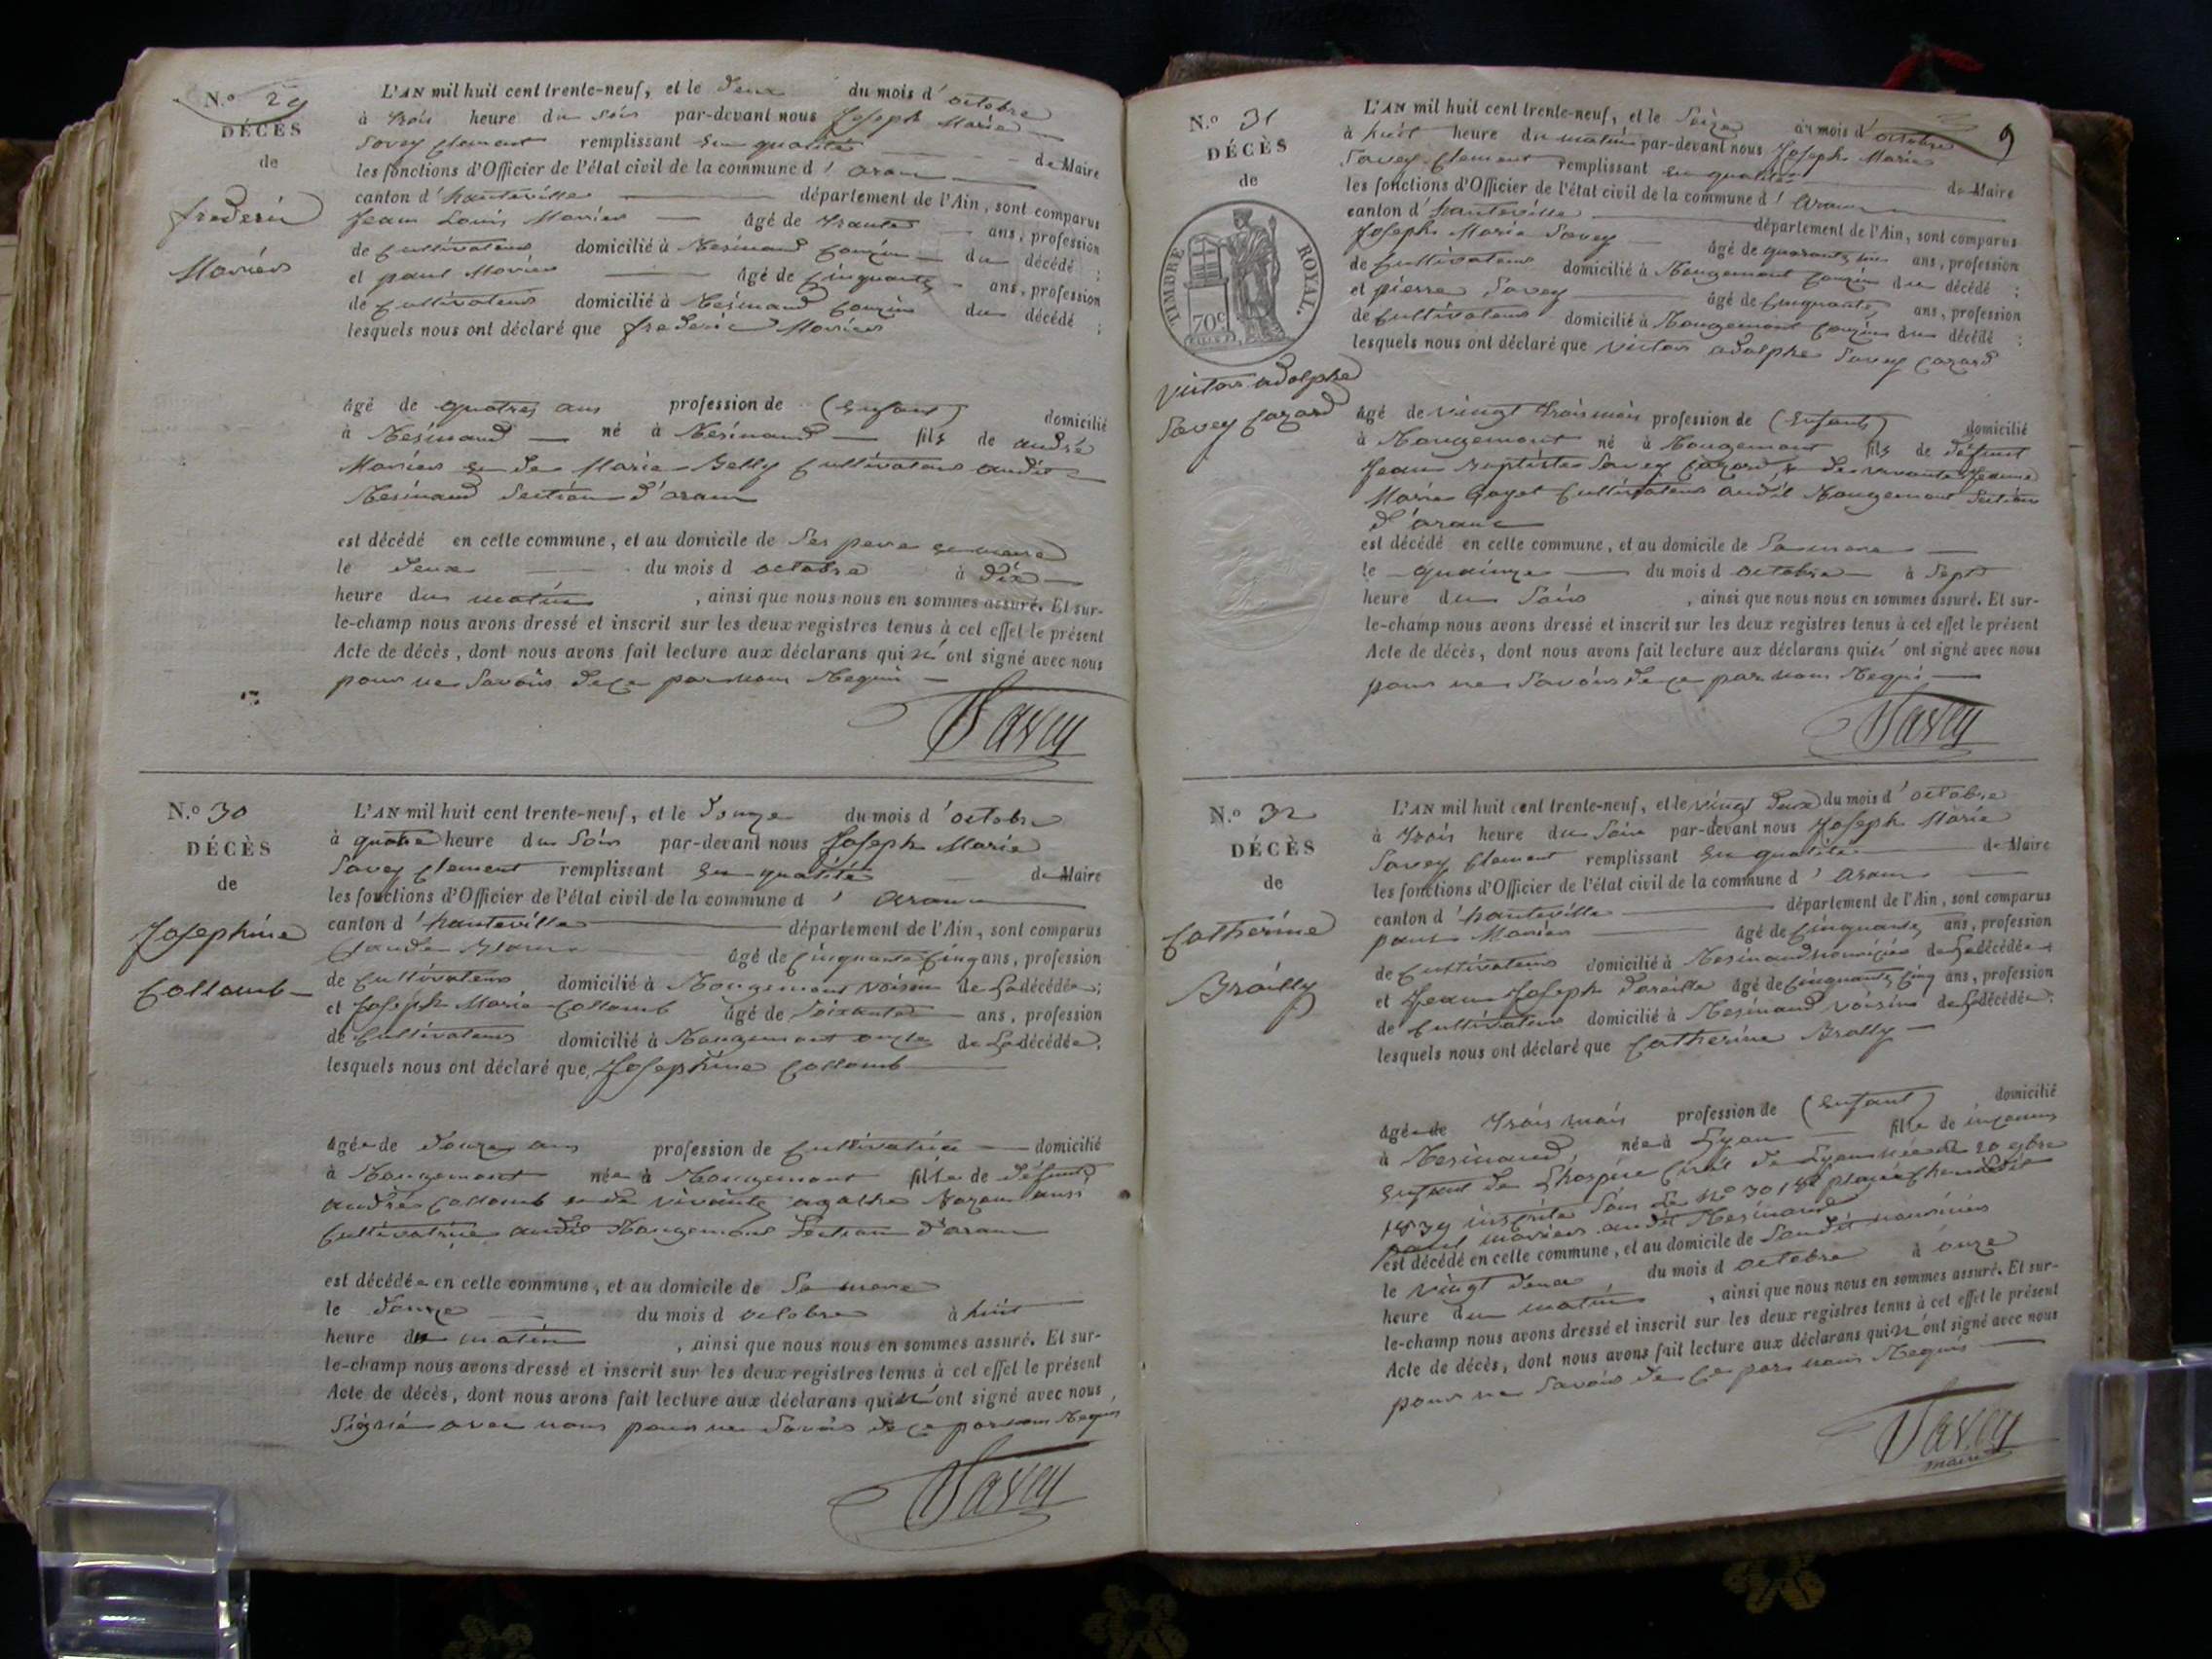 N.° 29
DÉCÈS
de
frederic
Moriers
L'AN mil huit cent trente-neuf, et le deux du mois d'octobre
à trois heure du soir par-devant nous Joseph Marie
Savey Clement remplissant en qualité de Maire
les fonctions d'Officier de l'état civil de la commune d'aranc
canton d'hauteville département de l'Ain, sont comparus
Jean Louis âgé de trante ans, profession
de Cultivateur domicilié à Resinand Couzin du décédé ;
et paul âgé de Cinquante ans, profession
de Cultivateur domicilié à Resinand Couzin du décédé ;
lesquels nous ont déclaré que frederic
âgé de quatres ans profession de (Enfant) domicilié
à Resinand né à Resinand fils de andré
et de Marie Belly Cultivateur audit
Resinand Section d'aranc
est décédé en cette commune, et au domicile de Ses pere et mere
le deux du mois d octobre à dix
heure du matin , ainsi que nous nous en sommes assuré. Et sur-
le-champ nous avons dressé et inscrit sur les deux registres tenus à cet effet le présent
Acte de décès, dont nous avons fait lecture aux déclarans qui n'ont signé avec nous
pour ne Savoir de ce par nous Requis
Savey
N.° 30
DÉCÈS
de
Josephine
Collomb
L'AN mil huit cent trente-neuf, et le douze du mois d'octobre
à quatre heure du Soir par-devant nous Joseph Marie
Savey Clement remplissant En qualité de Maire
les fonctions d'Officier de l'état civil de la commune d'aranc
canton d'hauteville département de l'Ain, sont comparus
Claude âgé de Cinquante Cinq ans, profession
de Cultivateur domicilié à Rougemont voisin de La décédée;
et Joseph Marie Collomb âgé de Soixante ans, profession
de Cultivateur domicilié à Rougemont oncle de La décédée,
lesquels nous ont déclaré que Josephine Collomb
âgée de douze ans profession de Cultivatrice domicilié
à Rougemont née à Rougemont fille de défunt
andré Collomb et de vivante agathe ausi
Cultivatrice audit Rougemont Section d'aranc
est décédée en cette commune, et au domicile de Sa mere
le douze du mois d octobre à huit
heure du matin , ainsi que nous nous en sommes assuré. Et sur-
le-champ nous avons dressé et inscrit sur les deux registres tenus à cet effet le présent
Acte de décès, dont nous avons fait lecture aux déclarans qui n'ont signé avec nous,
Signé avec nous pour ne Savoir de ce par nous Requis
Savey
9
N.° 31
DÉCÈS
de
TIMBRE ROYAL.
70c
Victor adolphe
Savey Cazard
L'AN mil huit cent trente-neuf, et le Seize du mois d'octobre
à huit heure du matin par-devant nous Joseph Marie
Savey Clement remplissant En qualité de Maire
les fonctions d'Officier de l'état civil de la commune d'aranc
canton d'hauteville département de l'Ain, sont comparus
Joseph Marie Savey âgé de quarante ans, profession
de Cultivateur domicilié à Rougemont Couzin du décédé ;
et pierre Savey âgé de Cinquante ans, profession
de Cultivateur domicilié à Rougemont Couzin du décédé ;
lesquels nous ont déclaré que Victor adolphe Savey Cazard
âgé de vingt trois mois profession de (Enfant) domicilié
à Rougemont né à Rougemont fils de défunt
Jean Baptiste Savey Cazard & de vivante Jeanne
Marie Goyet Cultivateur audit Rougemont Section
d'aranc
est décédé en cette commune, et au domicile de Sa mere
le quainze du mois d octobre à Sept
heure du Soir , ainsi que nous nous en sommes assuré. Et sur-
le-champ nous avons dressé et inscrit sur les deux registres tenus à cet effet le présent
Acte de décès, dont nous avons fait lecture aux déclarans qui n'ont signé avec nous
pour ne Savoir de ce par nous Requis
Savey
N.° 32
DÉCÈS
de
Catherine
Brailly
L'AN mil huit cent trente-neuf, et le vingt deux du mois d'octobre
à trois heure du Soir par-devant nous Joseph Marie
Savey Clement remplissant En qualité de Maire
les fonctions d'Officier de l'état civil de la commune d'aranc
canton d'hauteville département de l'Ain, sont comparus
paul âgé de Cinquante ans, profession
de Cultivateur domicilié à Resinand de La décédée ;
et Jean Joseph âgé de Cinquante Cinq ans, profession
de Cultivateur domicilié à Resinand voisins de La décédée,
lesquels nous ont déclaré que Catherine Brally
âgée de trois mois profession de (Enfant) domicilié
à Resinand née à Lyon fille de inconnus
Enfant de Lhospice Civil de Lyon née le 20
1839 inscrite Sous Le N° placée chez
paul audit Resinand
est décédé en cette commune, et au domicile de Sondit
le vingt deux du mois d octobre à onze
heure du matin , ainsi que nous nous en sommes assuré. Et sur-
le-champ nous avons dressé et inscrit sur les deux registres tenus à cet effet le présent
Acte de décès, dont nous avons fait lecture aux déclarans qui n'ont signé avec nous
pour ne Savoir de Ce par nous Requis
Savey
maire